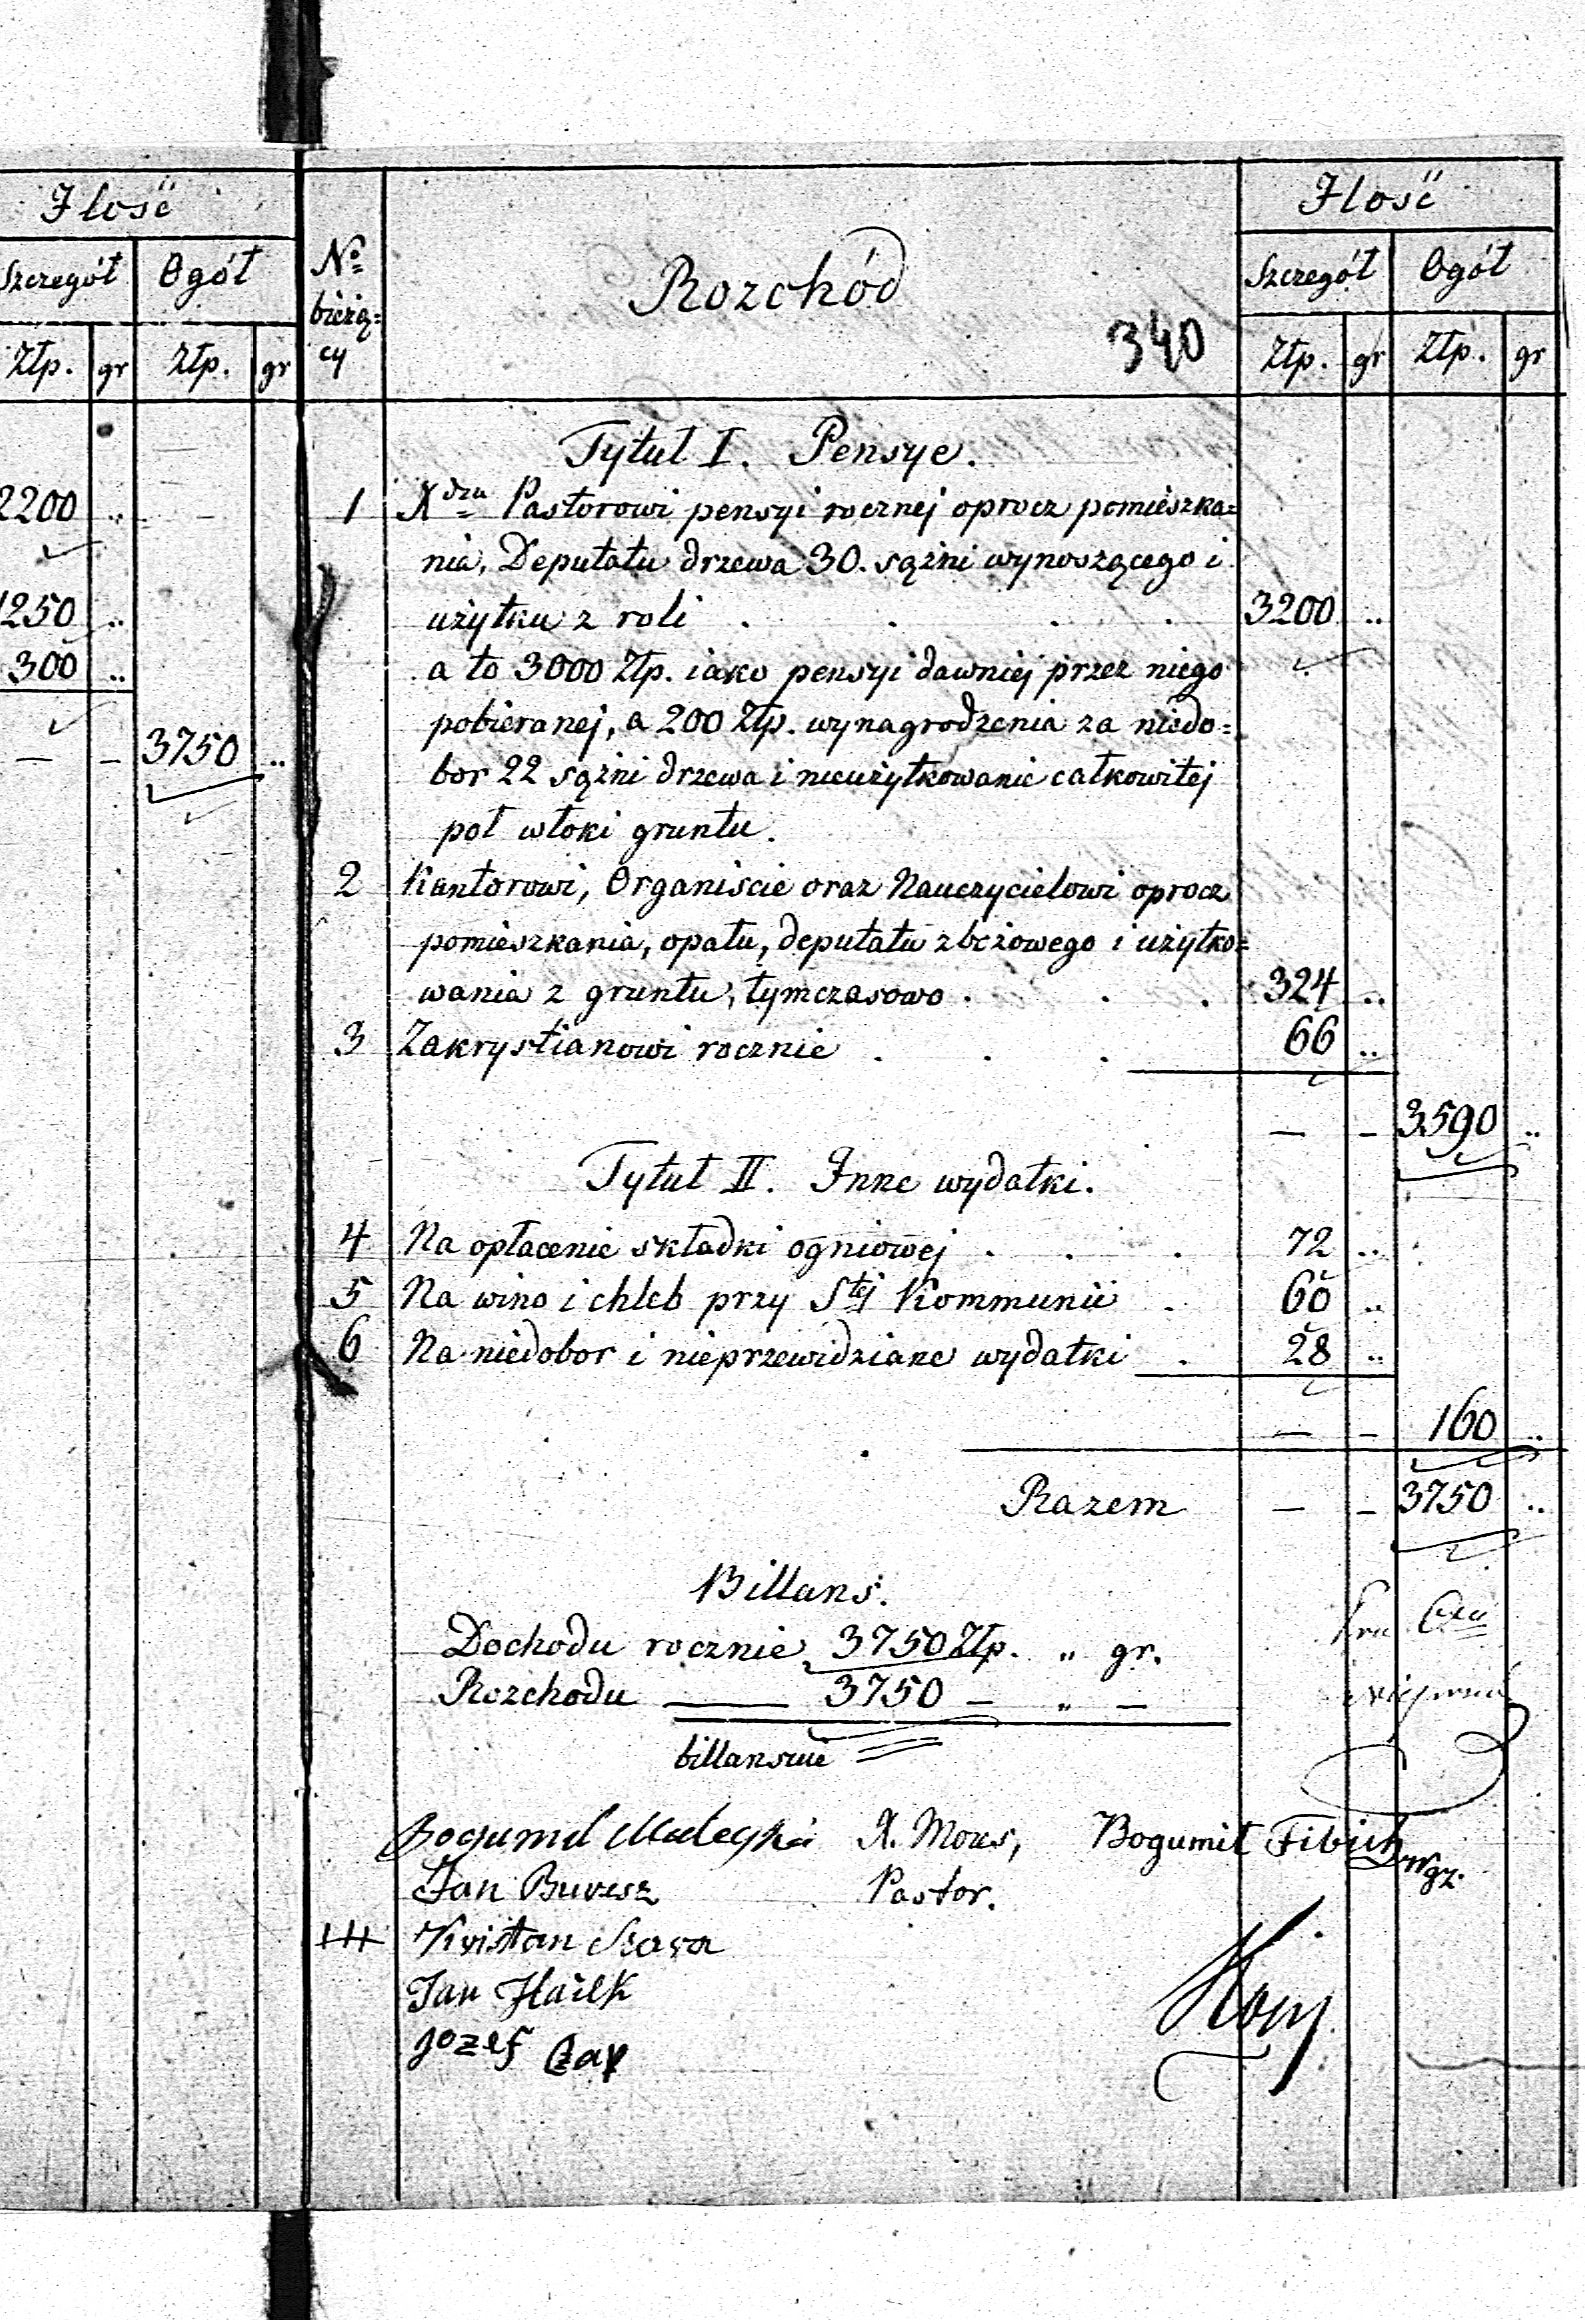 Ilość
Szczegół Ogół
Złp. gr Złp. gr
2200 ..
1250 ..
300 ..
— — 3750 ..
No bieżą=
cy
Rozchód
340
Ilość
Szczegół Ogół
Złp. gr Złp. gr
Tytuł I. Pensye.
1 Xdzu Pastorowi pensyi rocznej oprocz pomieszka=
nia, Deputatu drzewa 30. sążni wynoszącego i
użytku z roli . . . . 3200 ..
a to 3000 Złp. iako pensyi dawniej przez niego
pobieranej, a 200 Złp. wynagrodzenia za niedo=
bor 22 sążni drzewa i nieużytkowanie całkowitej
poł włoki gruntu.
2 Kantorowi, Organiście oraz Nauczycielowi oprocz
pomieszkania, opału, deputatu zbożowego i użytko=
wania z gruntu, tymczasowo . . . 324 ..
3 Zakrystianowi rocznie . . . 66 ..
— — 3590 ..
Tytuł II. Inne wydatki.
4 Na opłacenie składki ogniowej . . . 72 ..
5 Na wino i chleb przy Stej Kommunii . 60 ..
6 Na niedobor i nieprzewidziane wydatki . 28 ..
— — 160 ..
Razem — — 3750 ..
Billans.
Dochodu rocznie 3750 Złp. " gr.
Rozchodu — 3750 — " —
billansuie
Bogumił X. Mous, Bogumił Fibich
Jan Pastor.
Kristan
Jan
Jozef